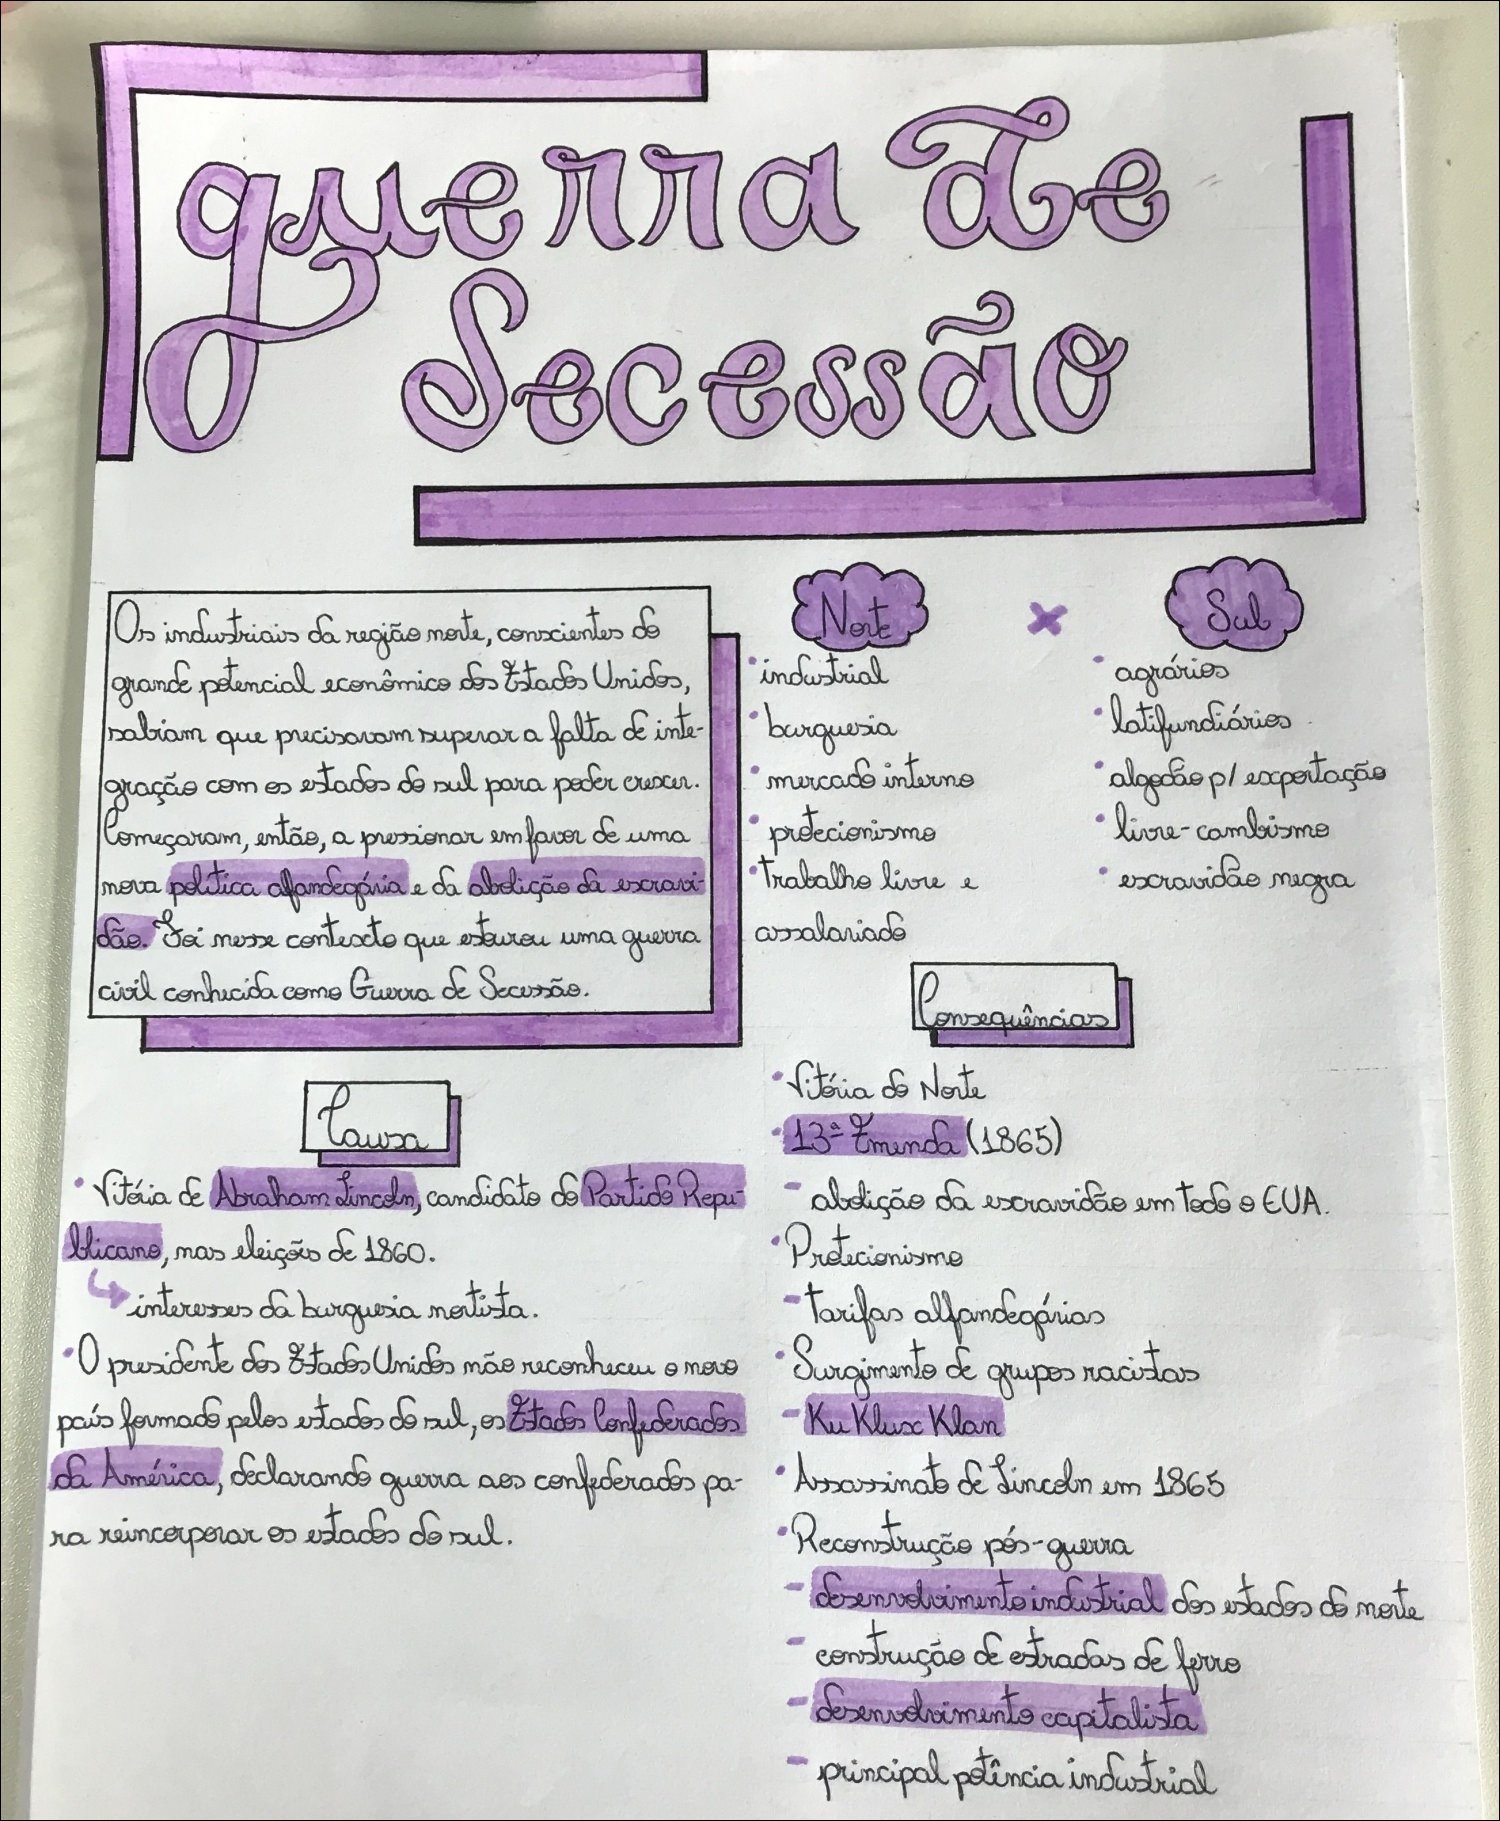 guerra de
Secessão
Os industriais da região norte, conscientes do
grande potencial econômico dos Estados Unidos,
sabiam que precisavam superar a falta de inte-
gração com os estados do sul para poder crescer.
Começaram, então, a pressionar em favor de uma
nova política alfandegária e da abolição da escravi-
dão. Foi nesse contexto que estourou uma guerra
civil conhecida como Guerra de Secessão.
Norte x Sul
• industrial
• burguesia
• mercado interno
• protecionismo
• trabalho livre e
assalariado
• agrários
• latifundiários
• algodão p/ exportação
• livre-cambismo
• escravidão negra
Causa
• Vitória de Abraham Lincoln, candidato do Partido Repu-
blicano, nas eleições de 1860.
↳ interesses da burguesia nortista.
• O presidente dos Estados Unidos não reconheceu o novo
país formado pelos estados do sul, os Estados Confederados
da América, declarando guerra aos confederados pa-
ra reincorporar os estados do sul.
Consequências
• Vitória do Norte
• 13ª Emenda (1865)
- abolição da escravidão em todo o EUA.
• Protecionismo
- tarifas alfandegárias
• Surgimento de grupos racistas
- Ku Klux Klan
• Assassinato de Lincoln em 1865
• Reconstrução pós-guerra
- desenvolvimento industrial dos estados do norte
- construção de estradas de ferro
- desenvolvimento capitalista
- principal potência industrial